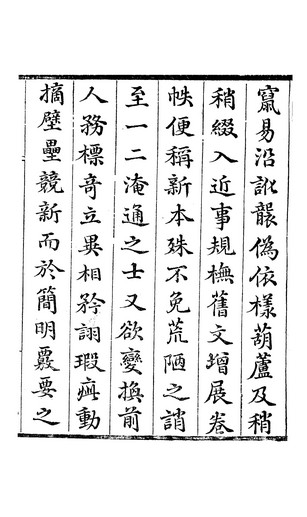 竄易沿訛襲偽依樣葫蘆及稍
稍綴入近事規橅舊文增展卷
帙便稱新本殊不免荒陋之誚
至一二淹通之士又欲變換前
人務標奇立異相矜詡瑕疵動
摘壁壘競新而於簡明覈要之